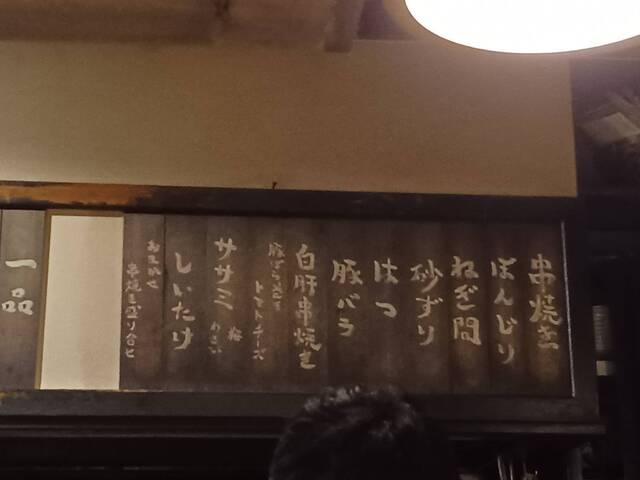 串焼き
ぼんじり
ねぎ間
砂ずり
はつ
豚バラ
白肝串焼き
豚バラ巻き
トマトチーズ
ササミ
梅
わさび
しいたけ
おまかせ
串焼き盛り合せ
一品